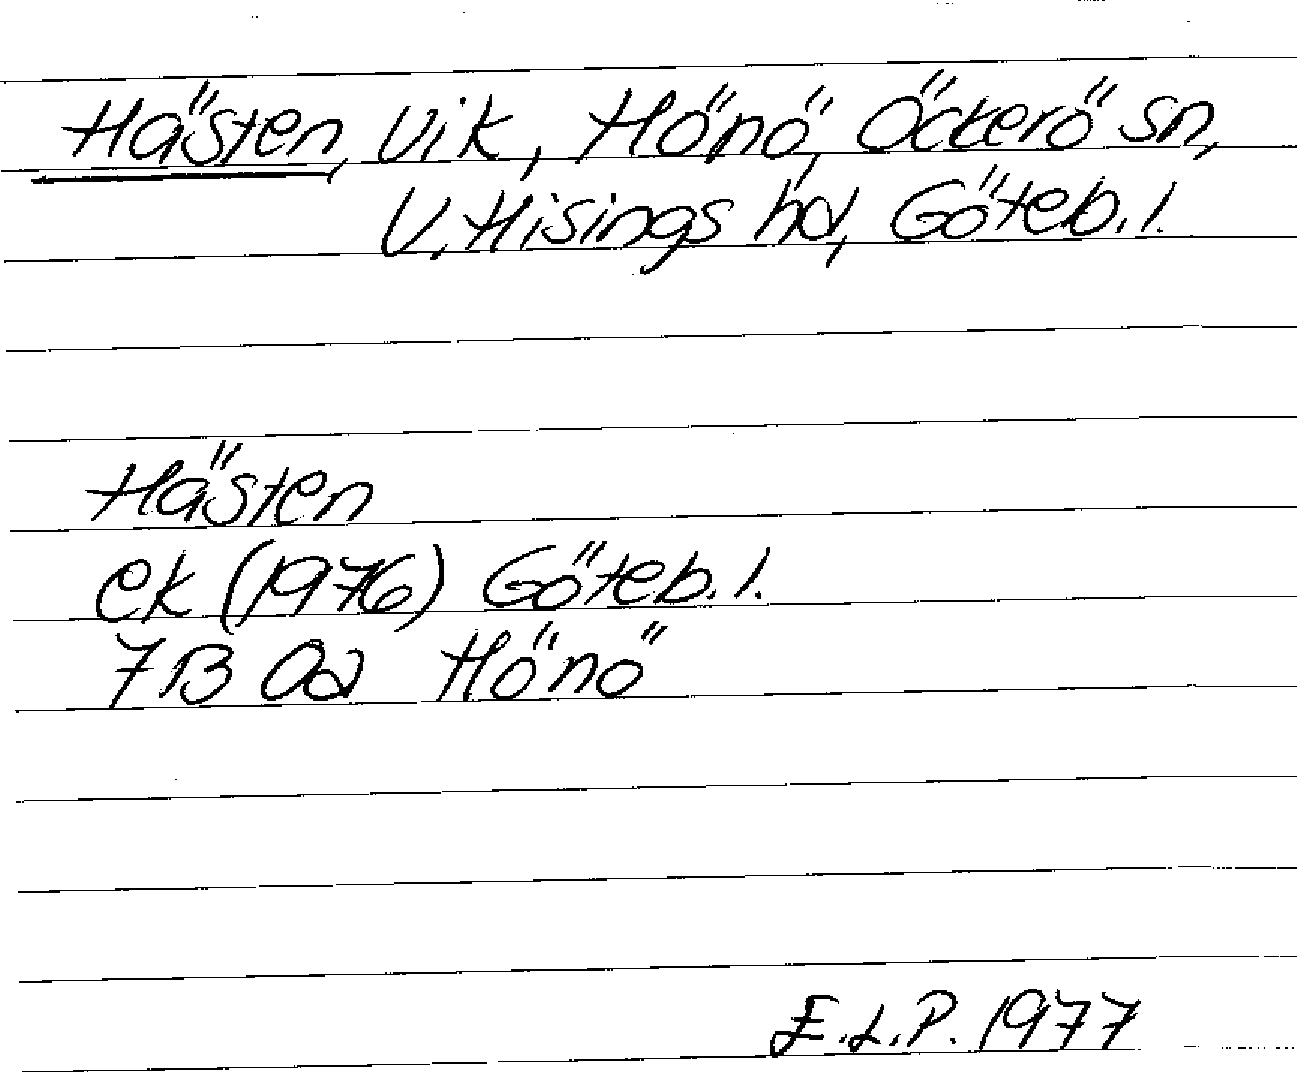 Hästen, vik, Hönö, Öckerö sn,
V. Hisings hd, Göteb. l.
Hästen
ek (1976) Göteb. l.
7B 0a Hönö
E.L.P. 1977